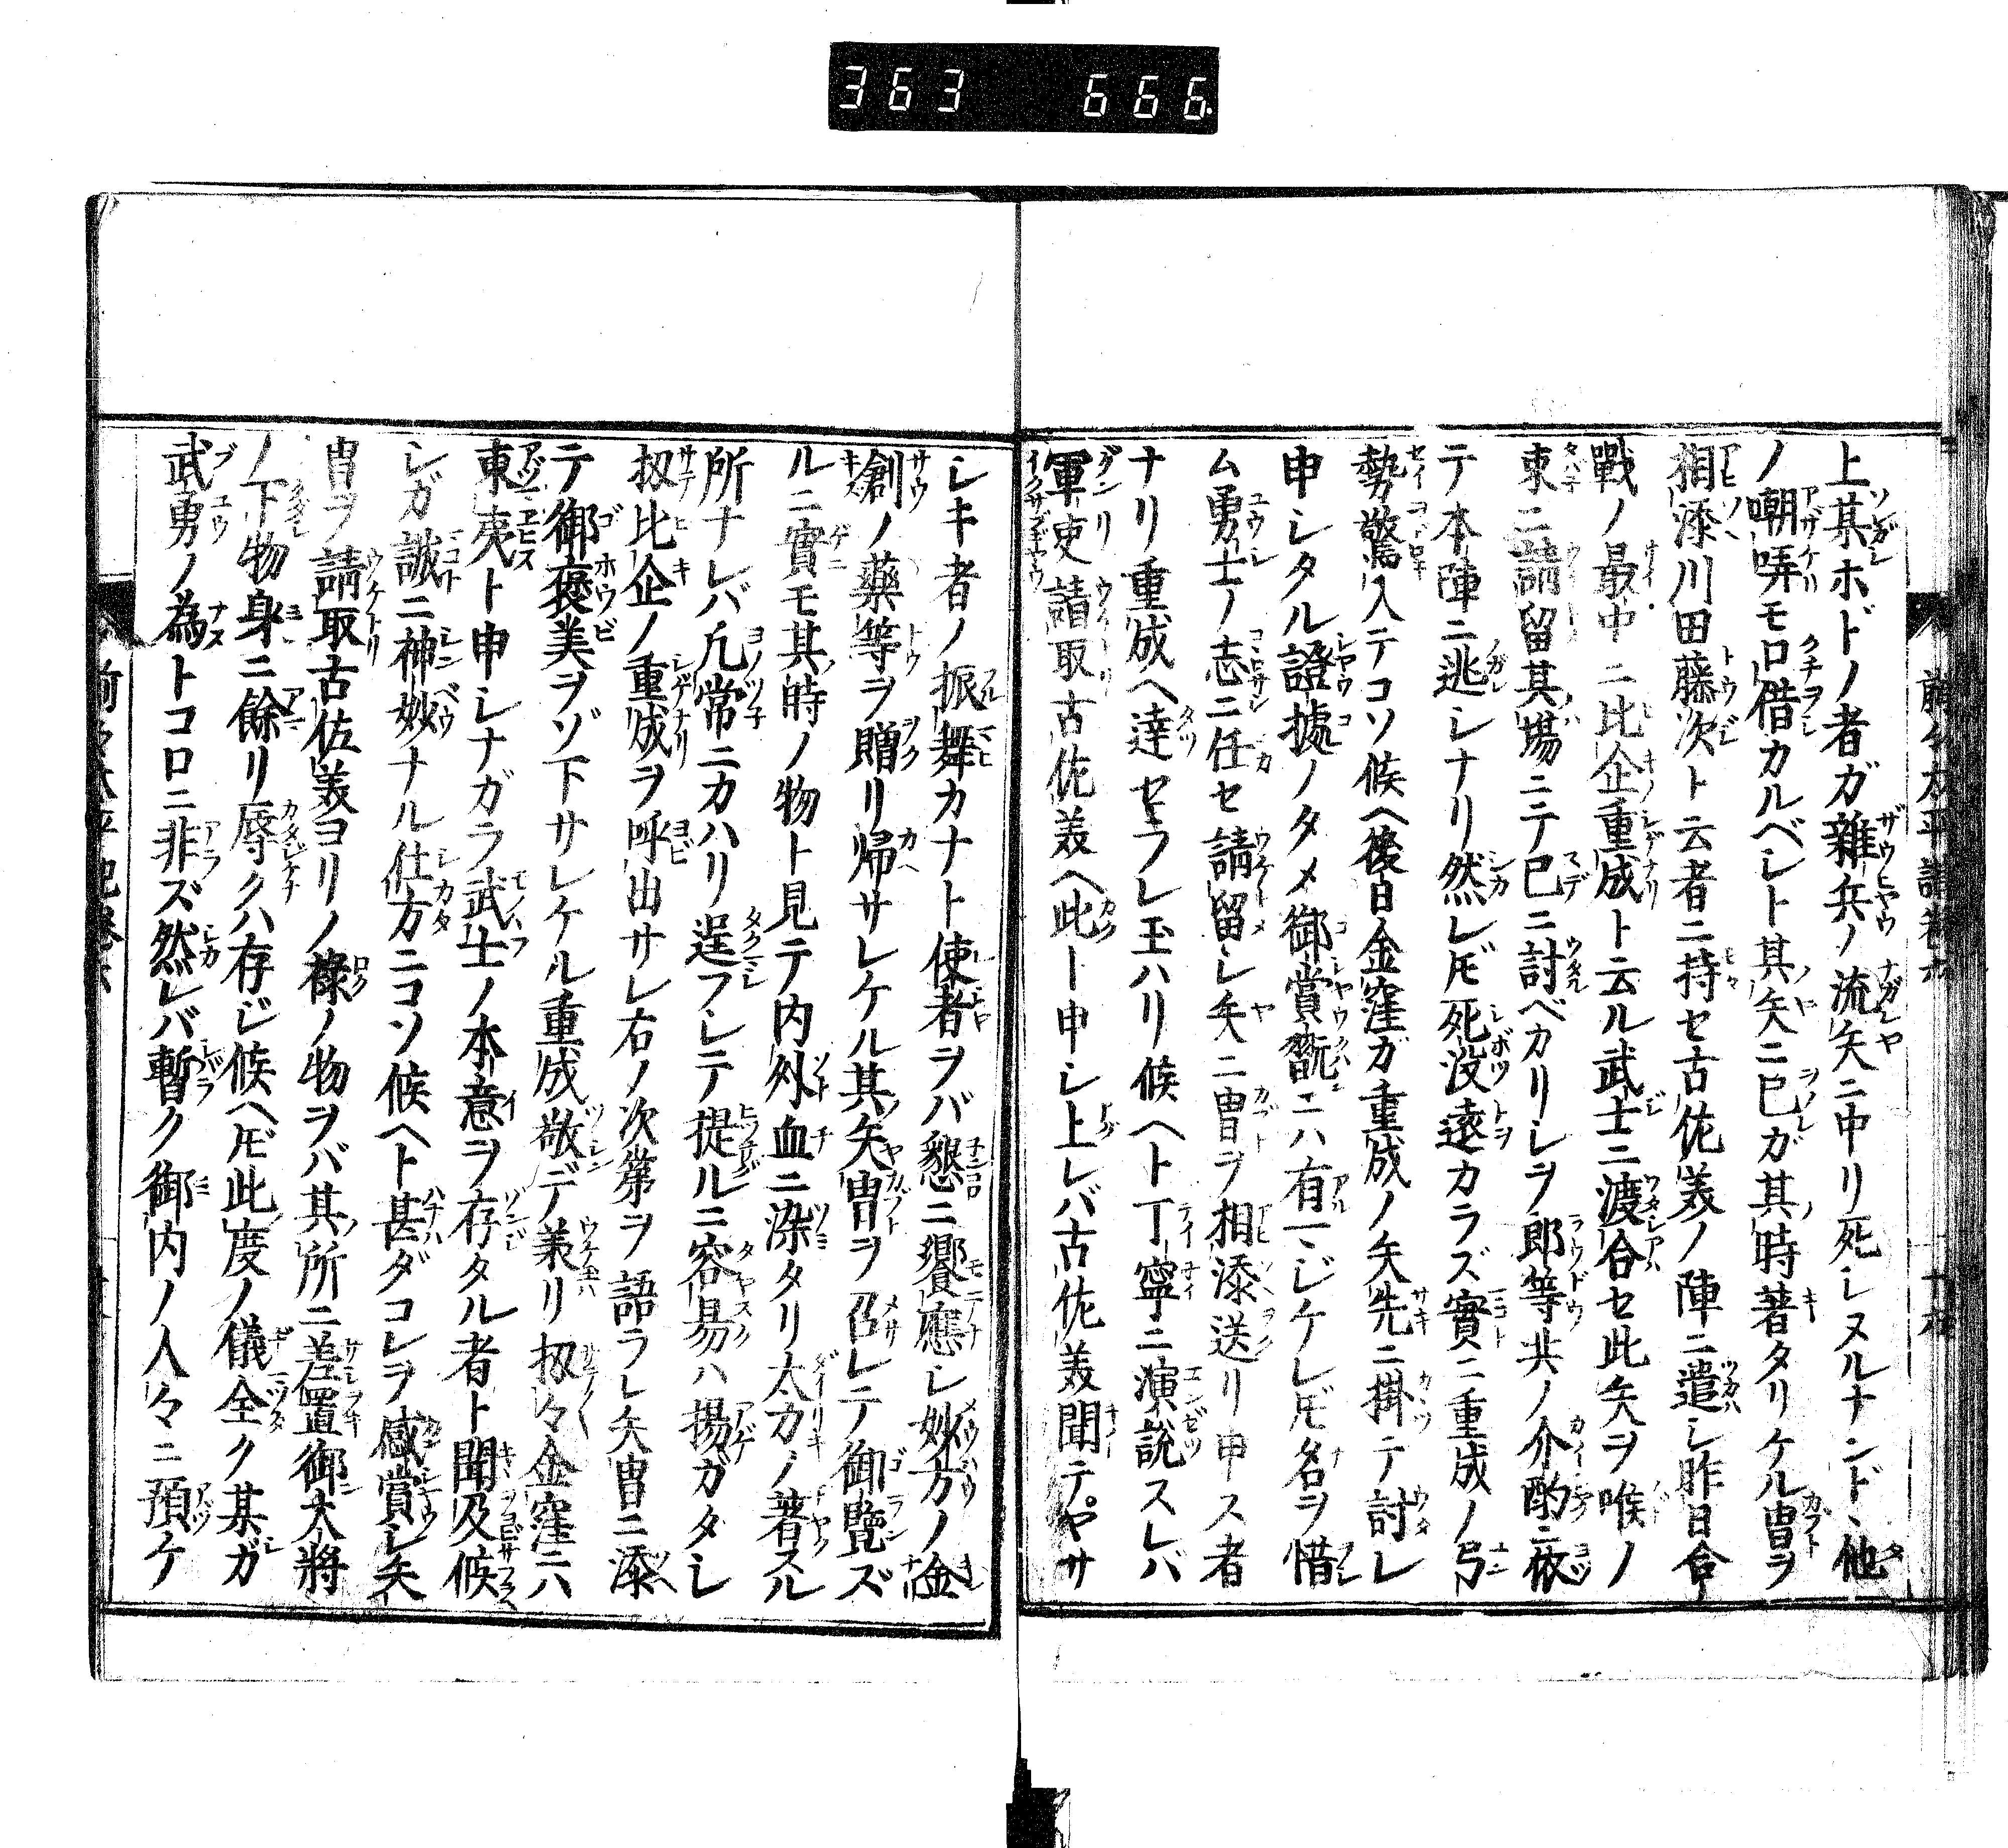 363 666
上某ホドノ者ガ雜兵ノ流矢ニ中リ死シヌルナンド、他
ノ嘲哢モ口借カルベシト其矢ニ已ガ其時著タリケル冑ヲ
相添川田藤次ト云者ニ持セ古佐美ノ陣ニ遣シ昨日合
戰ノ最中ニ比企重成ト云ル武士ニ渡合セ此矢ヲ喉ノ
束ニ請留其場ニテ已ニ討ベカリシヲ郎等共ノ介酌ニ依
テ本陣ニ逃シナリ然レ𪜈死没遠カラズ實ニ重成ノ弓
勢驚入テコソ候ヘ後日金窪ガ重成ノ矢先ニ掛テ討レ
申シタル證據ノタメ御賞翫ニハ有マジケレ𪜈名ヲ惜
ム勇士ノ志ニ任セ請留シ矢ニ冑ヲ相添送リ申ス者
ナリ重成ヘ達セラレ玉ハリ候ヘト丁寧ニ演說スレバ
軍吏請取古佐美ヘ此ト申シ上レバ古佐美聞テヤサ
シキ者ノ振舞カナト使者ヲバ懇ニ饗應シ妙方ノ金
創ノ藥等ヲ贈リ帰サレケル其矢冑ヲ召レテ御覽ズ
ルニ實モ其時ノ物ト見テ内外血ニ染タリ太刀ノ著スル
所ナレバ凡常ニカハリ逞フシテ提ルニ容易ハ揚ガタシ
扨比企ノ重成ヲ呼出サレ右ノ次第ヲ語ラレ矢冑ニ添
テ御褒美ヲゾ下サレケル重成敬デ承リ扨々金窪ニハ
東夷ト申シナガラ武士ノ本意ヲ存タル者ト聞及候
シガ誠ニ神妙ナル仕方ニコソ候ヘト甚ダコレヲ感賞シ矢
冑ヲ請取古佐美ヨリノ祿ノ物ヲバ其所ニ差置御大將
ノ下物身ニ餘リ辱クハ存ジ候ヘ𪜈此度ノ儀全ク某ガ
武勇ノ為トコロニ非ズ然レバ暫ク御内ノ人々ニ預ケ